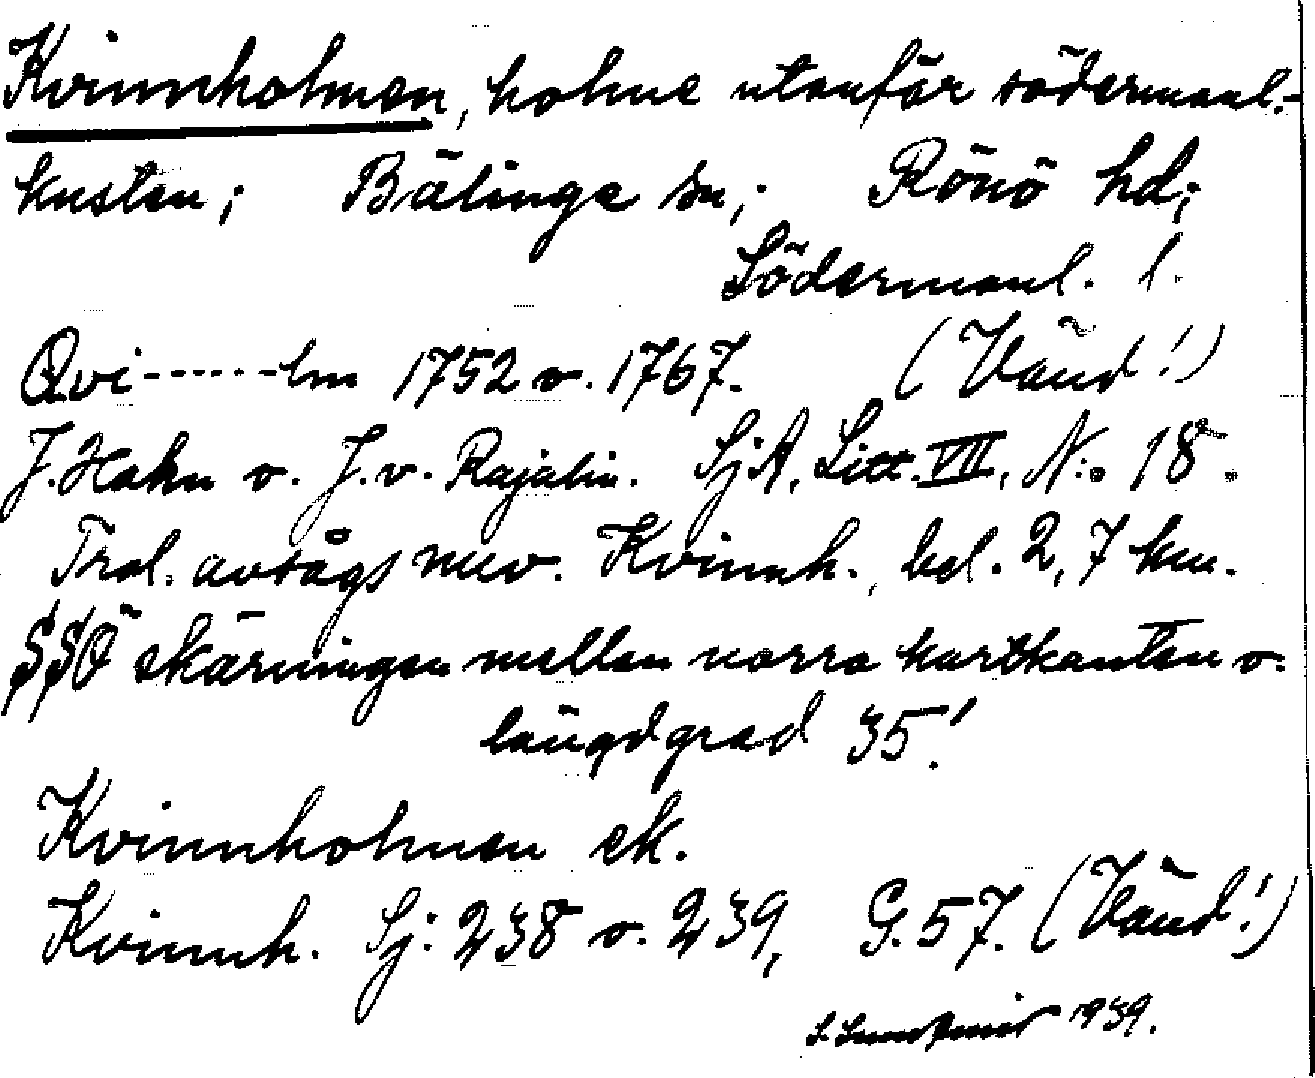 Kvinnholmen, holme utanför södermanl.-
kusten; Bälinge sn; Rönö hd;
Södermanl. l.
Qvi------lm 1752 o. 1767. (Vänd!)
J. Hahn o. J. v. Rajalin. SjA, Litt. VII, N:o 18.
Trol. avsågs nuv. Kvinnh., bel. 2,7 km.
SSÖ skärningen mellan norra kartkanten o.
längdgrad 35'.
Kvinnholmen ek.
Kvinnh. Sj: 238 o. 239, G. 57. (Vänd!)
1939.